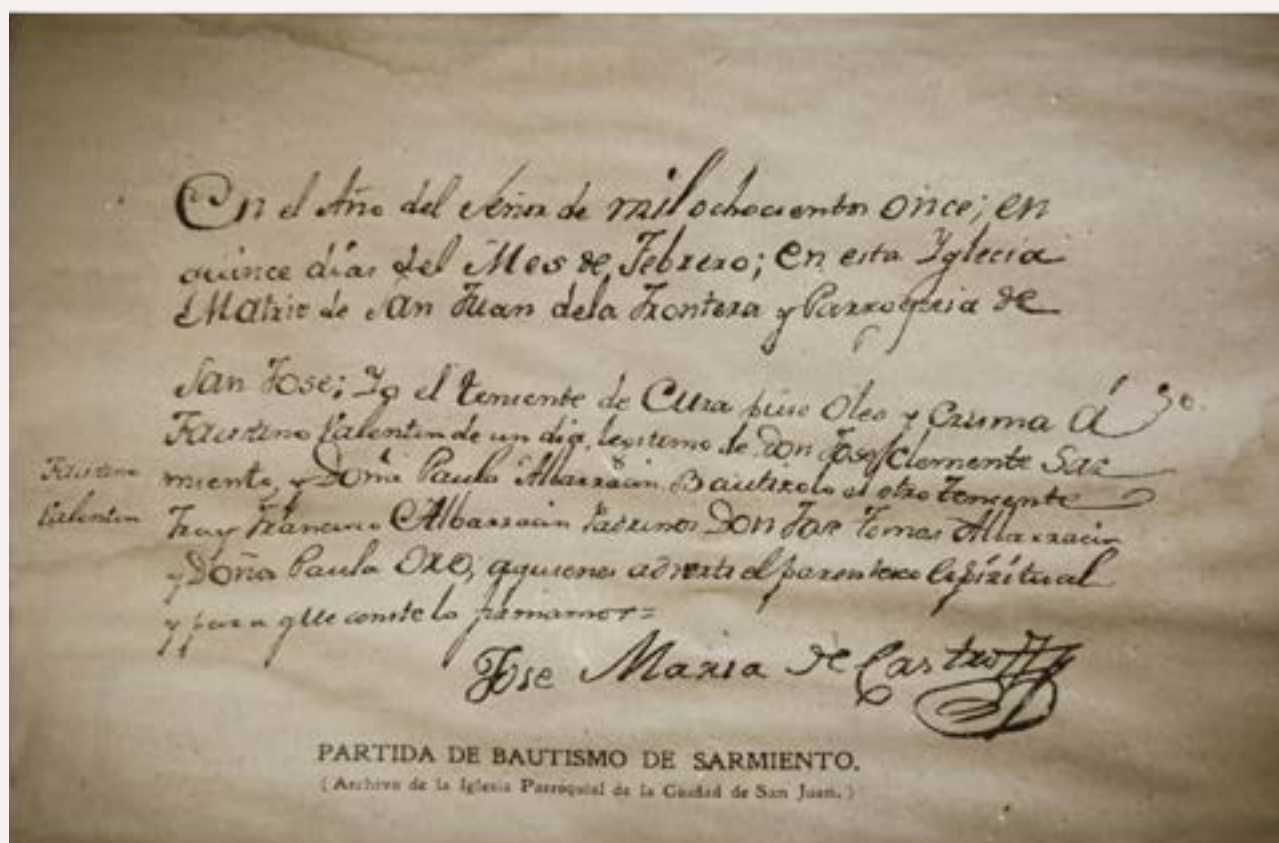 En el Año del Señor de mil ochocientos once; en
quince dias del Mes de Febrero; en esta Yglecia
Matriz de San Juan dela Frontera y Parroquia de
San Jose; Yo el teniente de Cura puse Oleo y Crisma Á
Faustino Valentin de un dia, legitimo de Don Jose Clemente Sar
miento, y Doña Paula Albarracin. Bautizolo el otro teneente
Fray Francisco Albarracin Padrinos Don Jose Tomas Albarracin
y Doña Paula Oro, aquienes advertí el parentezco Espiritual
y para que conste lo firmamos=
Jose Maria de Castro
Faustino
Valentin
PARTIDA DE BAUTISMO DE SARMIENTO.
(Archivo de la Iglesia Parroquial de la Ciudad de San Juan.)